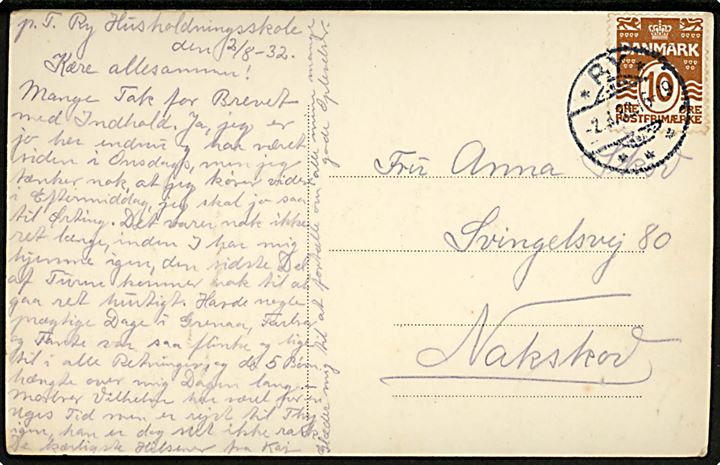 p.T. Ry Husholdningsskole
den 2/8-32.
Kære allesammen!
Mange Tak for Brevet
med Indhold. Ja, jeg er
jo her endnu og har været
siden i Onsdags, men jeg
tænker nok, at jeg kører videre
i Eftermiddag, jeg skal jo saa
til Ørting. Det varer nok ikke
ret længe, inden I har mig
hjemme igen, den sidste Del
af Turen kommer nok til at
gaa ret hurtigt. Havde nogle
prægtige Dage i Grenaa, Farbror
og Tante var saa flinke og lige
til i alle Retninger, og de 5 Børn
hængte over mig Dagen lang.
Morbror Vilhelm har været her en
Uges Tid men er rejst til Thy
igen, han er dog slet ikke rask.
De kærligste Hilsener fra Kaj
Glæder mig til at fortælle om alle mine mange
gode Oplevelser.
DANMARK
10
ØRE ØRE
POSTFRIMÆRKE
RY
Fru Anna Skov
Svingelsvej 80
Nakskov